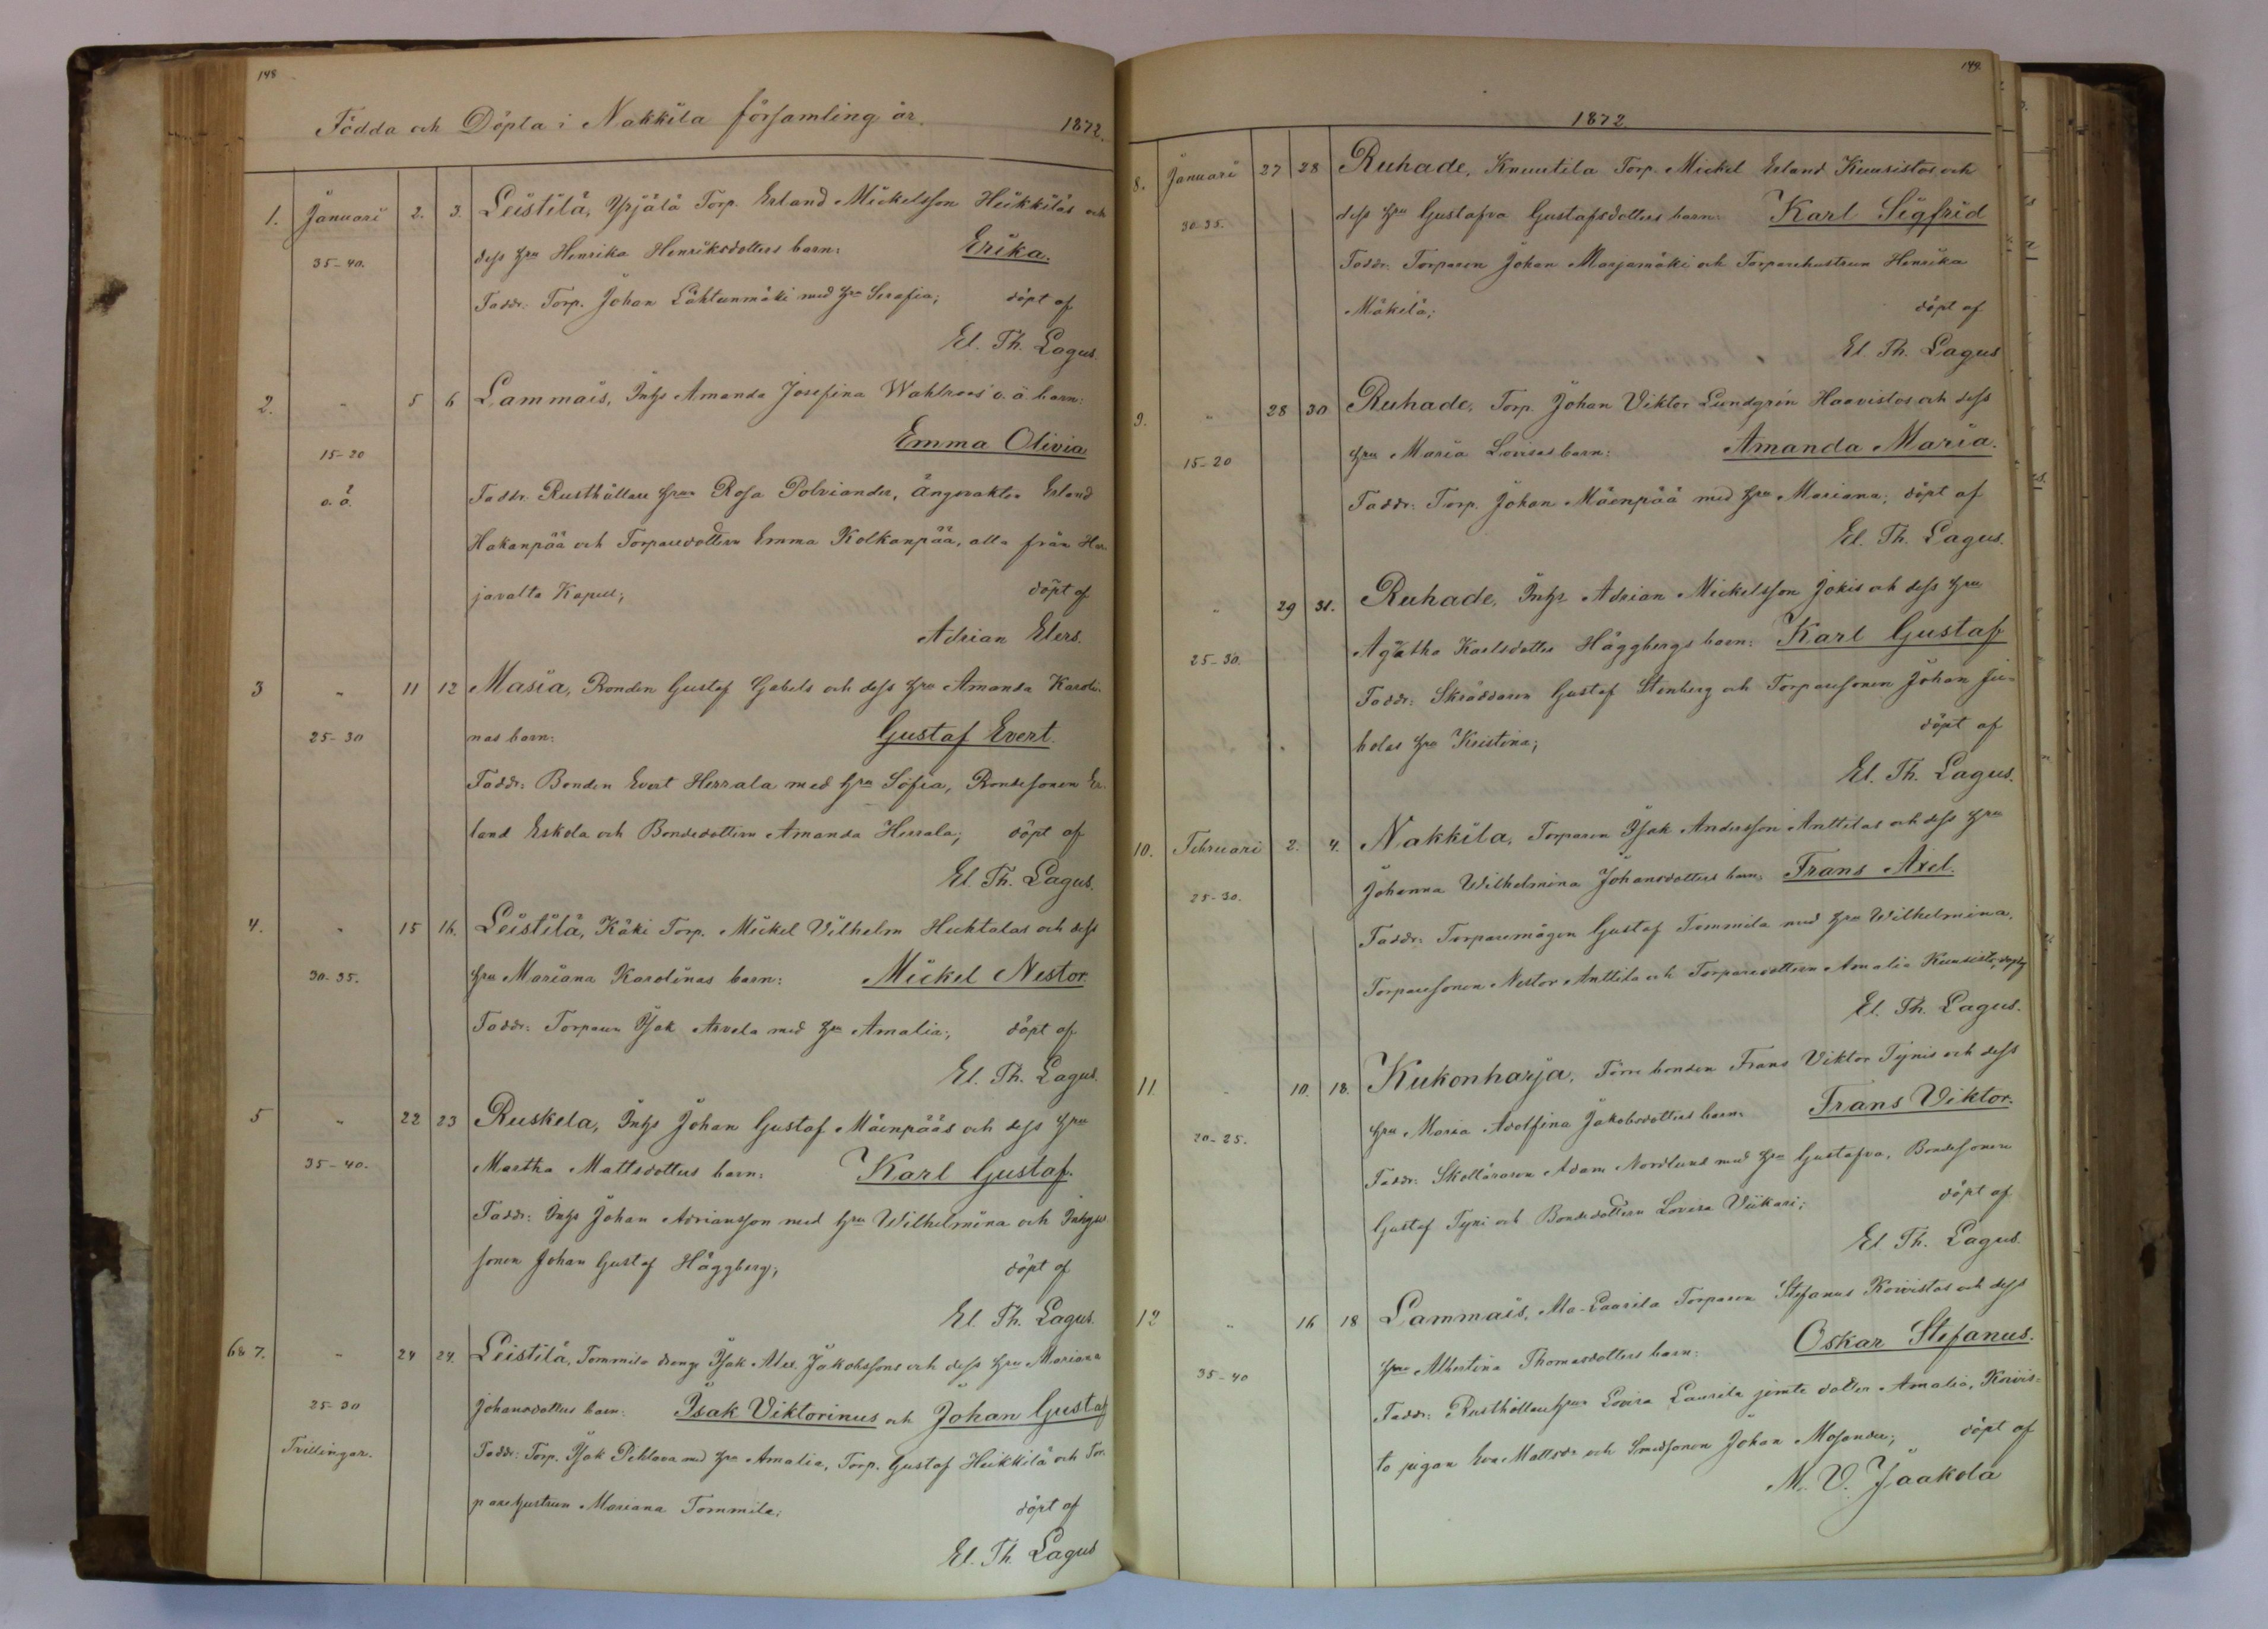 148
Födda och Döpta i Nakkila församling år. 1872.
1. Januari 2. 3. Leistilä, Yrjälä Torp. Erland Mickelsson Heikkiläs och
35-40. dess hru Henrika Henriksdotters barn: Erika.
Faddr: Torp. Johan Lähteenmäki med hru Serafia; döpt af
El. Th. Lagus.
2. " 5 6 Lammais, Inhs Amanda Josefina Wahlroos' o. ä. barn:
Emma Olivia
15-20
o. ä. Faddr: Rusthållare hrun Rosa Polviander, Ängsvakten Erland
Hakanpää och Torparedottern Emma Kolkanpää, alla från Har-
javalta Kapell; döpt af
Adrian Elers.
3 " 11 12 Masia, Bonden Gustaf Gabels och dess hru Amanda Karoli-
25-30 nas barn: Gustaf Evert.
Faddr: Bonden Evert Herrala med hru Sofia, Bondesonen Er-
land Eskola och Bondedottern Amanda Herrala; döpt af
El. Th. Lagus.
4. " 15 16. Leistilä, Käki Torp. Mickel Vilhelm Huhtalas och dess
30-35. hru Mariana Karolinas barn: Mickel Nestor.
Faddr: Torparen Isak Arvela med hru Amalia; döpt af
El. Th. Lagus.
5 " 22 23 Ruskela, Inhs Johan Gustaf Mäenpääs och dess hru
35-40. Martha Mattsdotters barn: Karl Gustaf.
Faddr: Inhs Johan Adriansson med hru Wilhelmina och Inhyses
sonen Johan Gustaf Häggberg; döpt af
El. Th. Lagus.
6 & 7. " 24 24. Leistilä, Tommila dreng Isak Alex. Jakobssons och dess hru Mariana
25-30 Johansdotters barn: Isak Viktorinus och Johan Gustaf
Tvillingar. Faddr: Torp. Isak Pihlava med hru Amalia, Torp. Gustaf Heikkilä och Tor-
parehustrun Mariana Tommila; döpt af
El. Th. Lagus
149.
1872.
8. Januari 27 28 Ruhade, Knuutila Torp. Mickel Erland Kuusistos och
30-35. dess hru Gustafva Gustafsdotters barn: Karl Sigfrid
Faddr: Torparen Johan Marjamäki och Torparehustrun Henrika
Mäkelä; döpt af
El. Th. Lagus
9. " 28 30 Ruhade, Torp. Johan Viktor Lundgrén Haavistos och dess
15-20 hru Maria Lovisas barn: Amanda Maria.
Faddr: Torp. Johan Mäenpää med hru Mariana; döpt af
El. Th. Lagus.
" 29 31. Ruhade, Inhs Adrian Mickelsson Jokis och dess hru
25-30. Agatha Karlsdotter Häggbergs barn: Karl Gustaf
Faddr: Skräddaren Gustaf Stenberg och Torparesonen Johan Ju-
holas hru Kristina; döpt af
El. Th. Lagus.
10. Februari 2. 4. Nakkila, Torparen Isak Andersson Anttilas och dess hru
25-30. Johanna Wilhelmina Johansdotters barn: Frans Axel.
Faddr: Torparemågen Gustaf Tommila med hru Wilhelmina,
Torparesonen Nestor Anttila och Torparedottern Amalia Kuusisto; döpt af
El. Th. Lagus.
11. " 10. 18. Kukonharja, Törre bonden Frans Viktor Tynis och dess
20-25. hru Maria Adolfina Jakobsdotters barn: Frans Viktor.
Faddr: Skolläraren Adam Nordlund med hru Gustafva, Bondesonen
Gustaf Tyni och Bondedottern Lovisa Viikari; döpt af
El. Th. Lagus.
12 " 16 18 Lammais, Ala-Laurila Torparen Stefanus Koivistos och dess
35-40 hru Albertina Thomasdotters barn: Oskar Stefanus.
Faddr: Rusthållarehrun Lovisa Laurila jemte dotter Amalia, Koivis-
to pigan Eva Mattsdr och Smedsonen Johan Mosander; döpt af
M. V. Jaakola